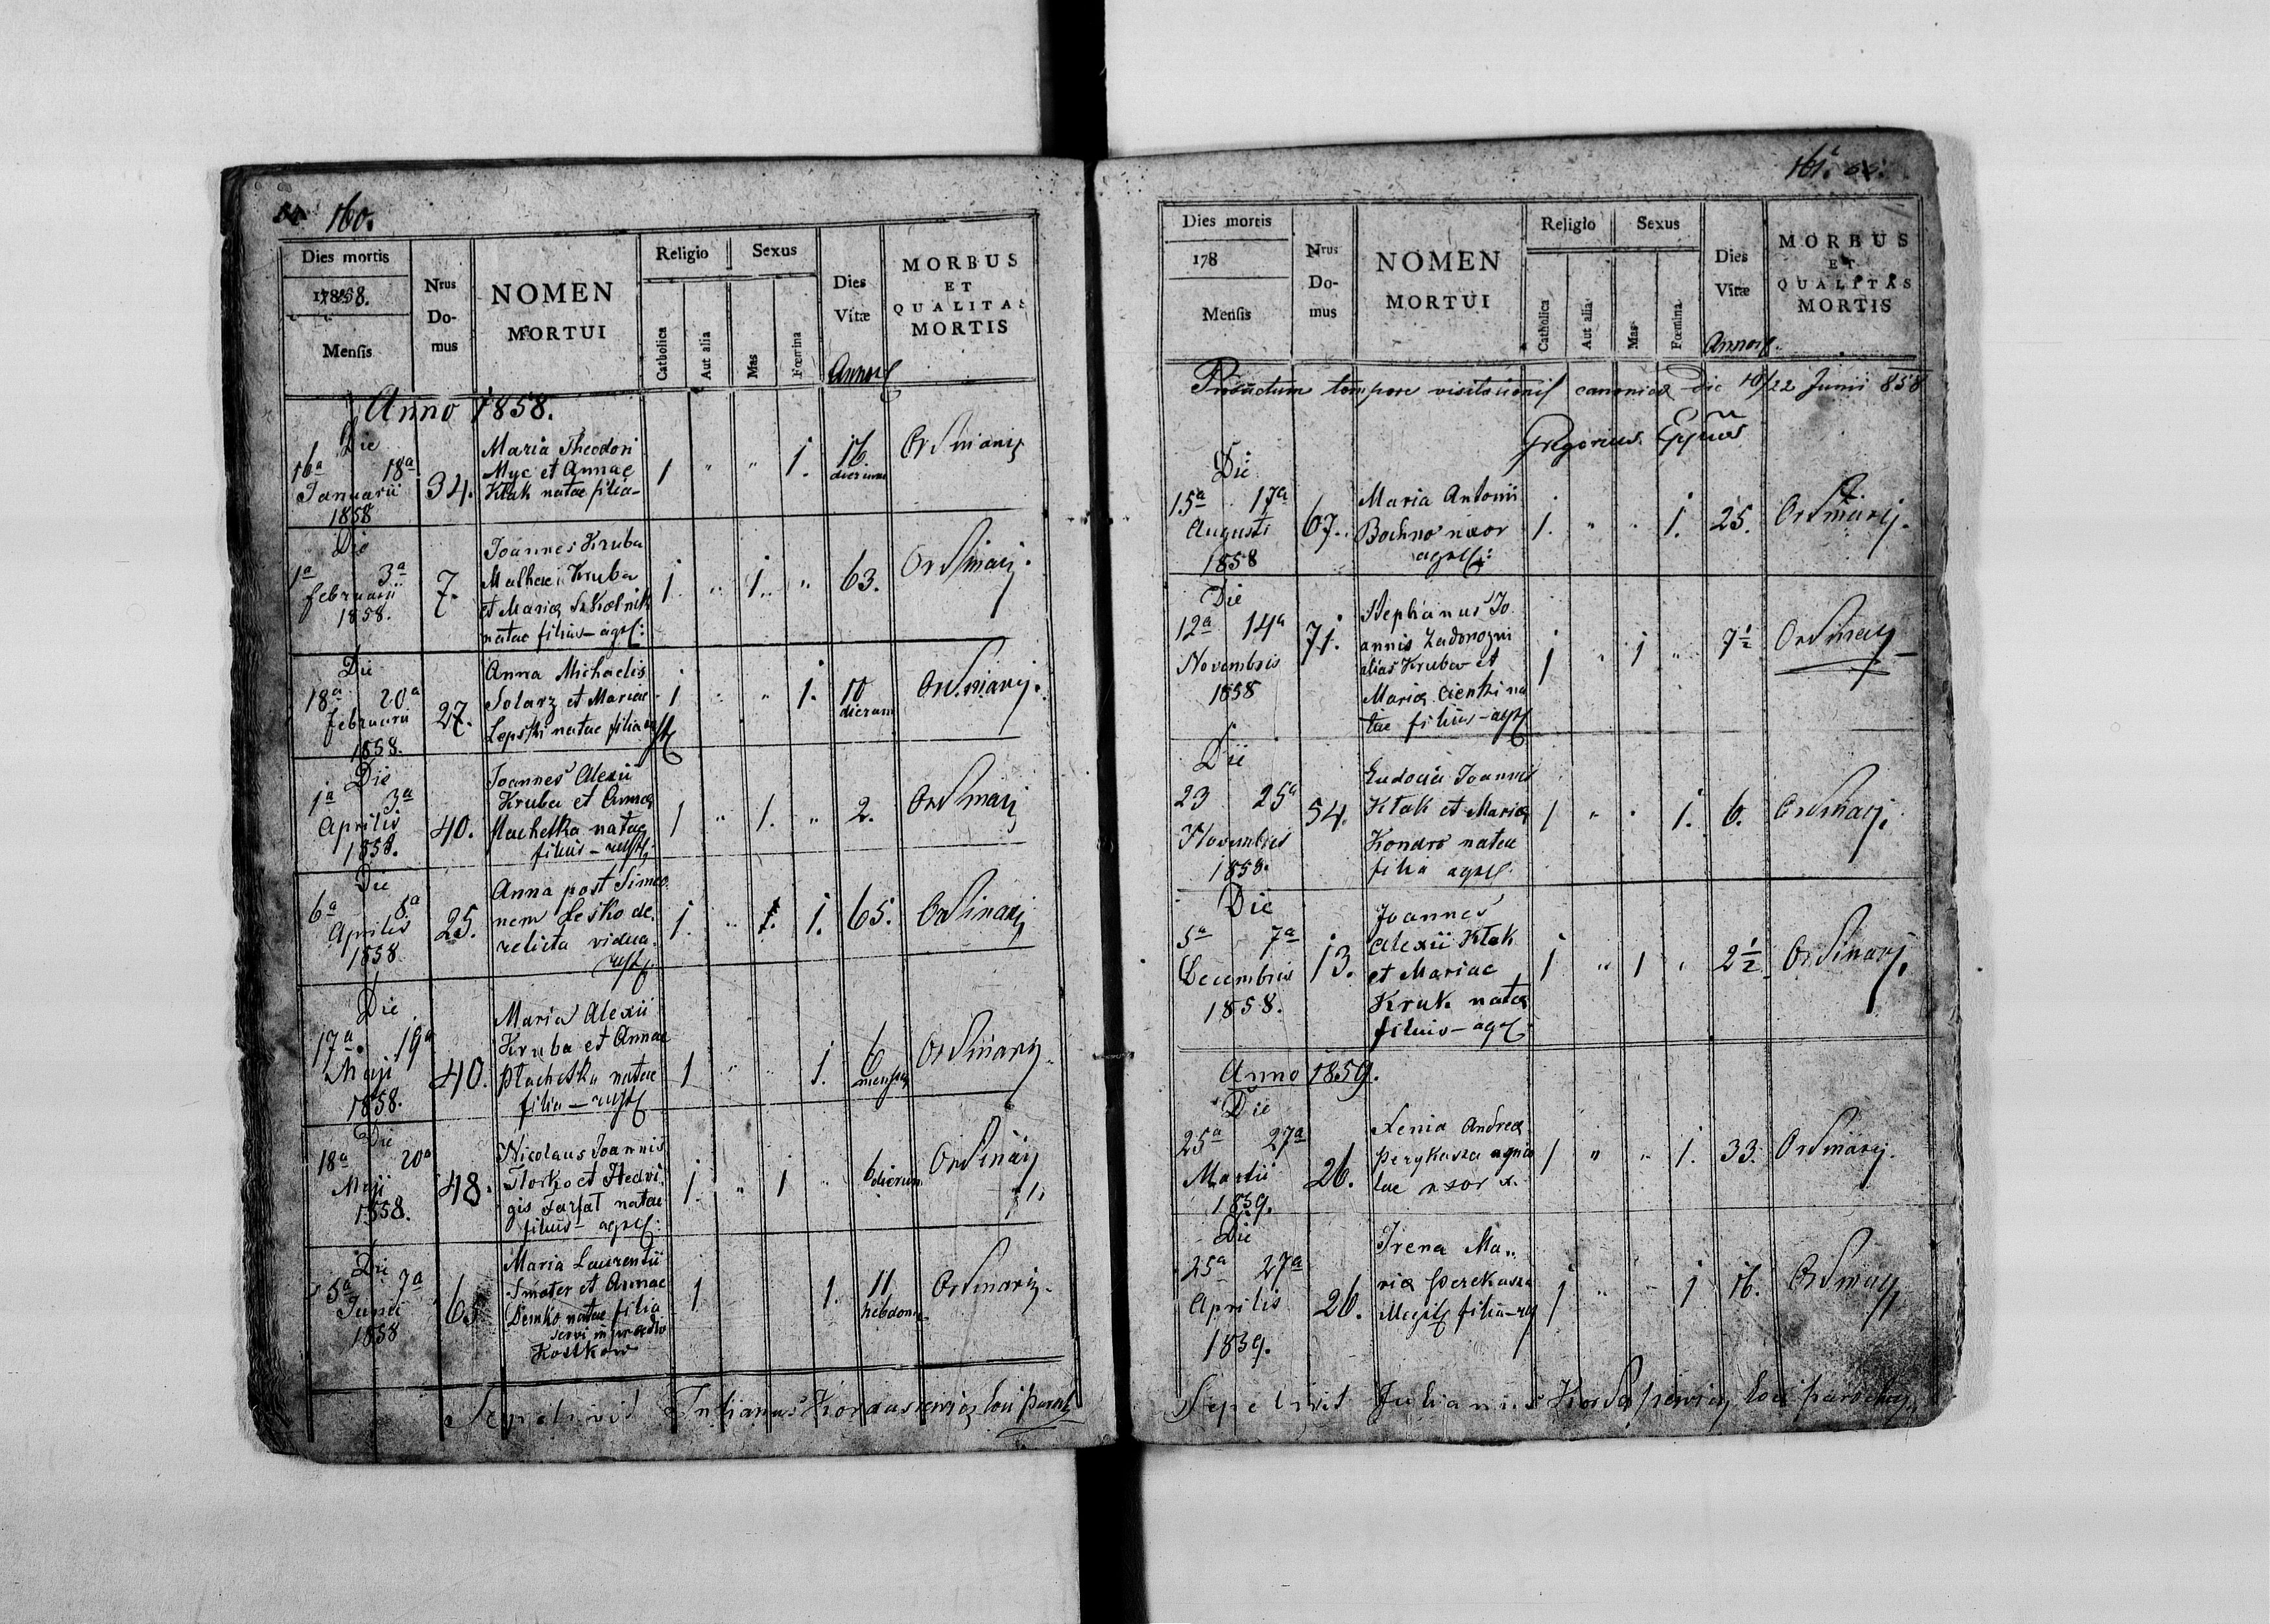 160.
Dies mortis
1858.
Mensis
Nrus
Do-
mus
NOMEN
MORTUI
Religio
Catholica
Aut alia
Sexus
Mas
Fœmina
Dies
Vitæ
MORBUS
ET
QUALITAS
MORTIS
Anno 1858.
Die
16a 18a
Januarii
1858
34.
Maria Theodori
Myc et Annae
Kłak natae filia
1 " " 1.
16
dierum
Ordinarij
Die
1a 3a
februarii
1858.
7.
Joannes Kruba
Mathei Kruba
et Mariæ Szkolnik
natae filius - agr:
1. " 1. " 63.
Ordinarij.
Die
18a 20a
februarii
1858.
27.
Anna Michaelis
Solarz et Mariae
Lepski natae filia
1 " " 1.
10
dierum
Ordinarij.
Die
1a 3a
Aprilis
1858.
40.
Joannes Alexii
Kruba et Annæ
natae
filius -
1 " 1. " 2.
Ordinarij
Die
6a 8a
Aprilis
1858
25.
Anna post Simeo
nem Lesko de
relicta vidua
1. " 1. 65.
Ordinarij
Die
17a 19a
Maji
1858.
40.
Maria Alexii
Kruba et Annae
natae
filia -
1 " " 1.
6
Ordinarij.
Die
18a 20a
Maji
1858.
48.
Nicolaus Joannis
et Hedvi
gis natae
filius - agr:
1. " 1 "
6 dierum
Ordinarij
Die
5a 7a
Junii
1858
65
Maria Laurentii
et Annae
Demko natae filia
servi in praedio
Kostkow
1. 1.
11
hebdom
Ordinarij.
Sepelivit Julianus loci
161.
Dies mortis
178
Mensis
Nrus
Do-
mus
NOMEN
MORTUI
Religio
Catholica
Aut alia
Sexus
Mas
Fœmina
Dies
Vitæ
MORBUS
ET
QUALITAS
MORTIS
Productum tempore visitationis canonicæ die 10/22 Junii 858
Gregorius Eppus
Die
15a 17a
Augusti
1858
67.
Maria Antonii
Bochno uxor
1. " " 1. 25.
Ordinarij.
Die
12a 14a
Novembris
1858
71.
Stephanus Jo
annis Zadorozni
alias Kruba et
Mariæ na
tae filius - agr
1 " 1 " 7½
Ordinarij
Die
23 25a
Novembris
1858.
54.
Eudocia Joannis
Kłak et Mariæ
Kondro natae
filia agr.
1 " " 1. 6.
Ordinarij.
Die
5a 7a
Decembris
1858.
13.
Joannes
Alexii Kłak
et Mariae
Kruk natæ
filius - agr
1 " 1 " 2½
Ordinarij.
Anno 1859.
Die
25a 27a
Martii
1859.
26.
Xenia Andreæ
agrico
lae uxor
1 " " 1. 33.
Ordinarij.
Die
25a 27a
Aprilis
1859.
26.
Irena Ma..
riæ Perekasza
filia
1 " " 1 16.
Ordinarij
Sepelivit Julianus loci parochus